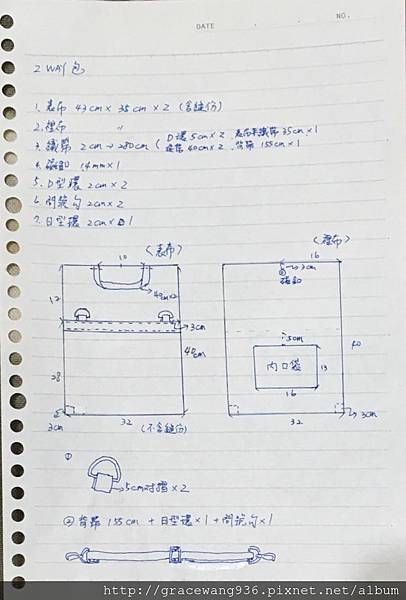 DATE
NO.
2 WAY包
1. 表布 43cm × 35cm × 2 (含縫份)
2. 裡布 〃
3. 織帶 2cm → 280cm ( D環 5cm × 2 , 表布車織帶 35cm × 1
提帶 40cm × 2 , 背帶 155cm × 1 )
4. 磁釦 14mm × 1
5. D型環 2cm × 2
6. 問號勾 2cm × 2
7. 日型環 2cm × 1
(表布)
10
12
40cm
3cm
40cm
28
3cm
32
(不含縫份)
(裡布)
16
3cm
磁釦
5cm
內口袋
13
16
40
32
3cm
①
5cm對摺 × 2
② 背帶 155cm + 日型環 × 1 + 問號勾 × 1
http://gracewang936.pixnet.net/album